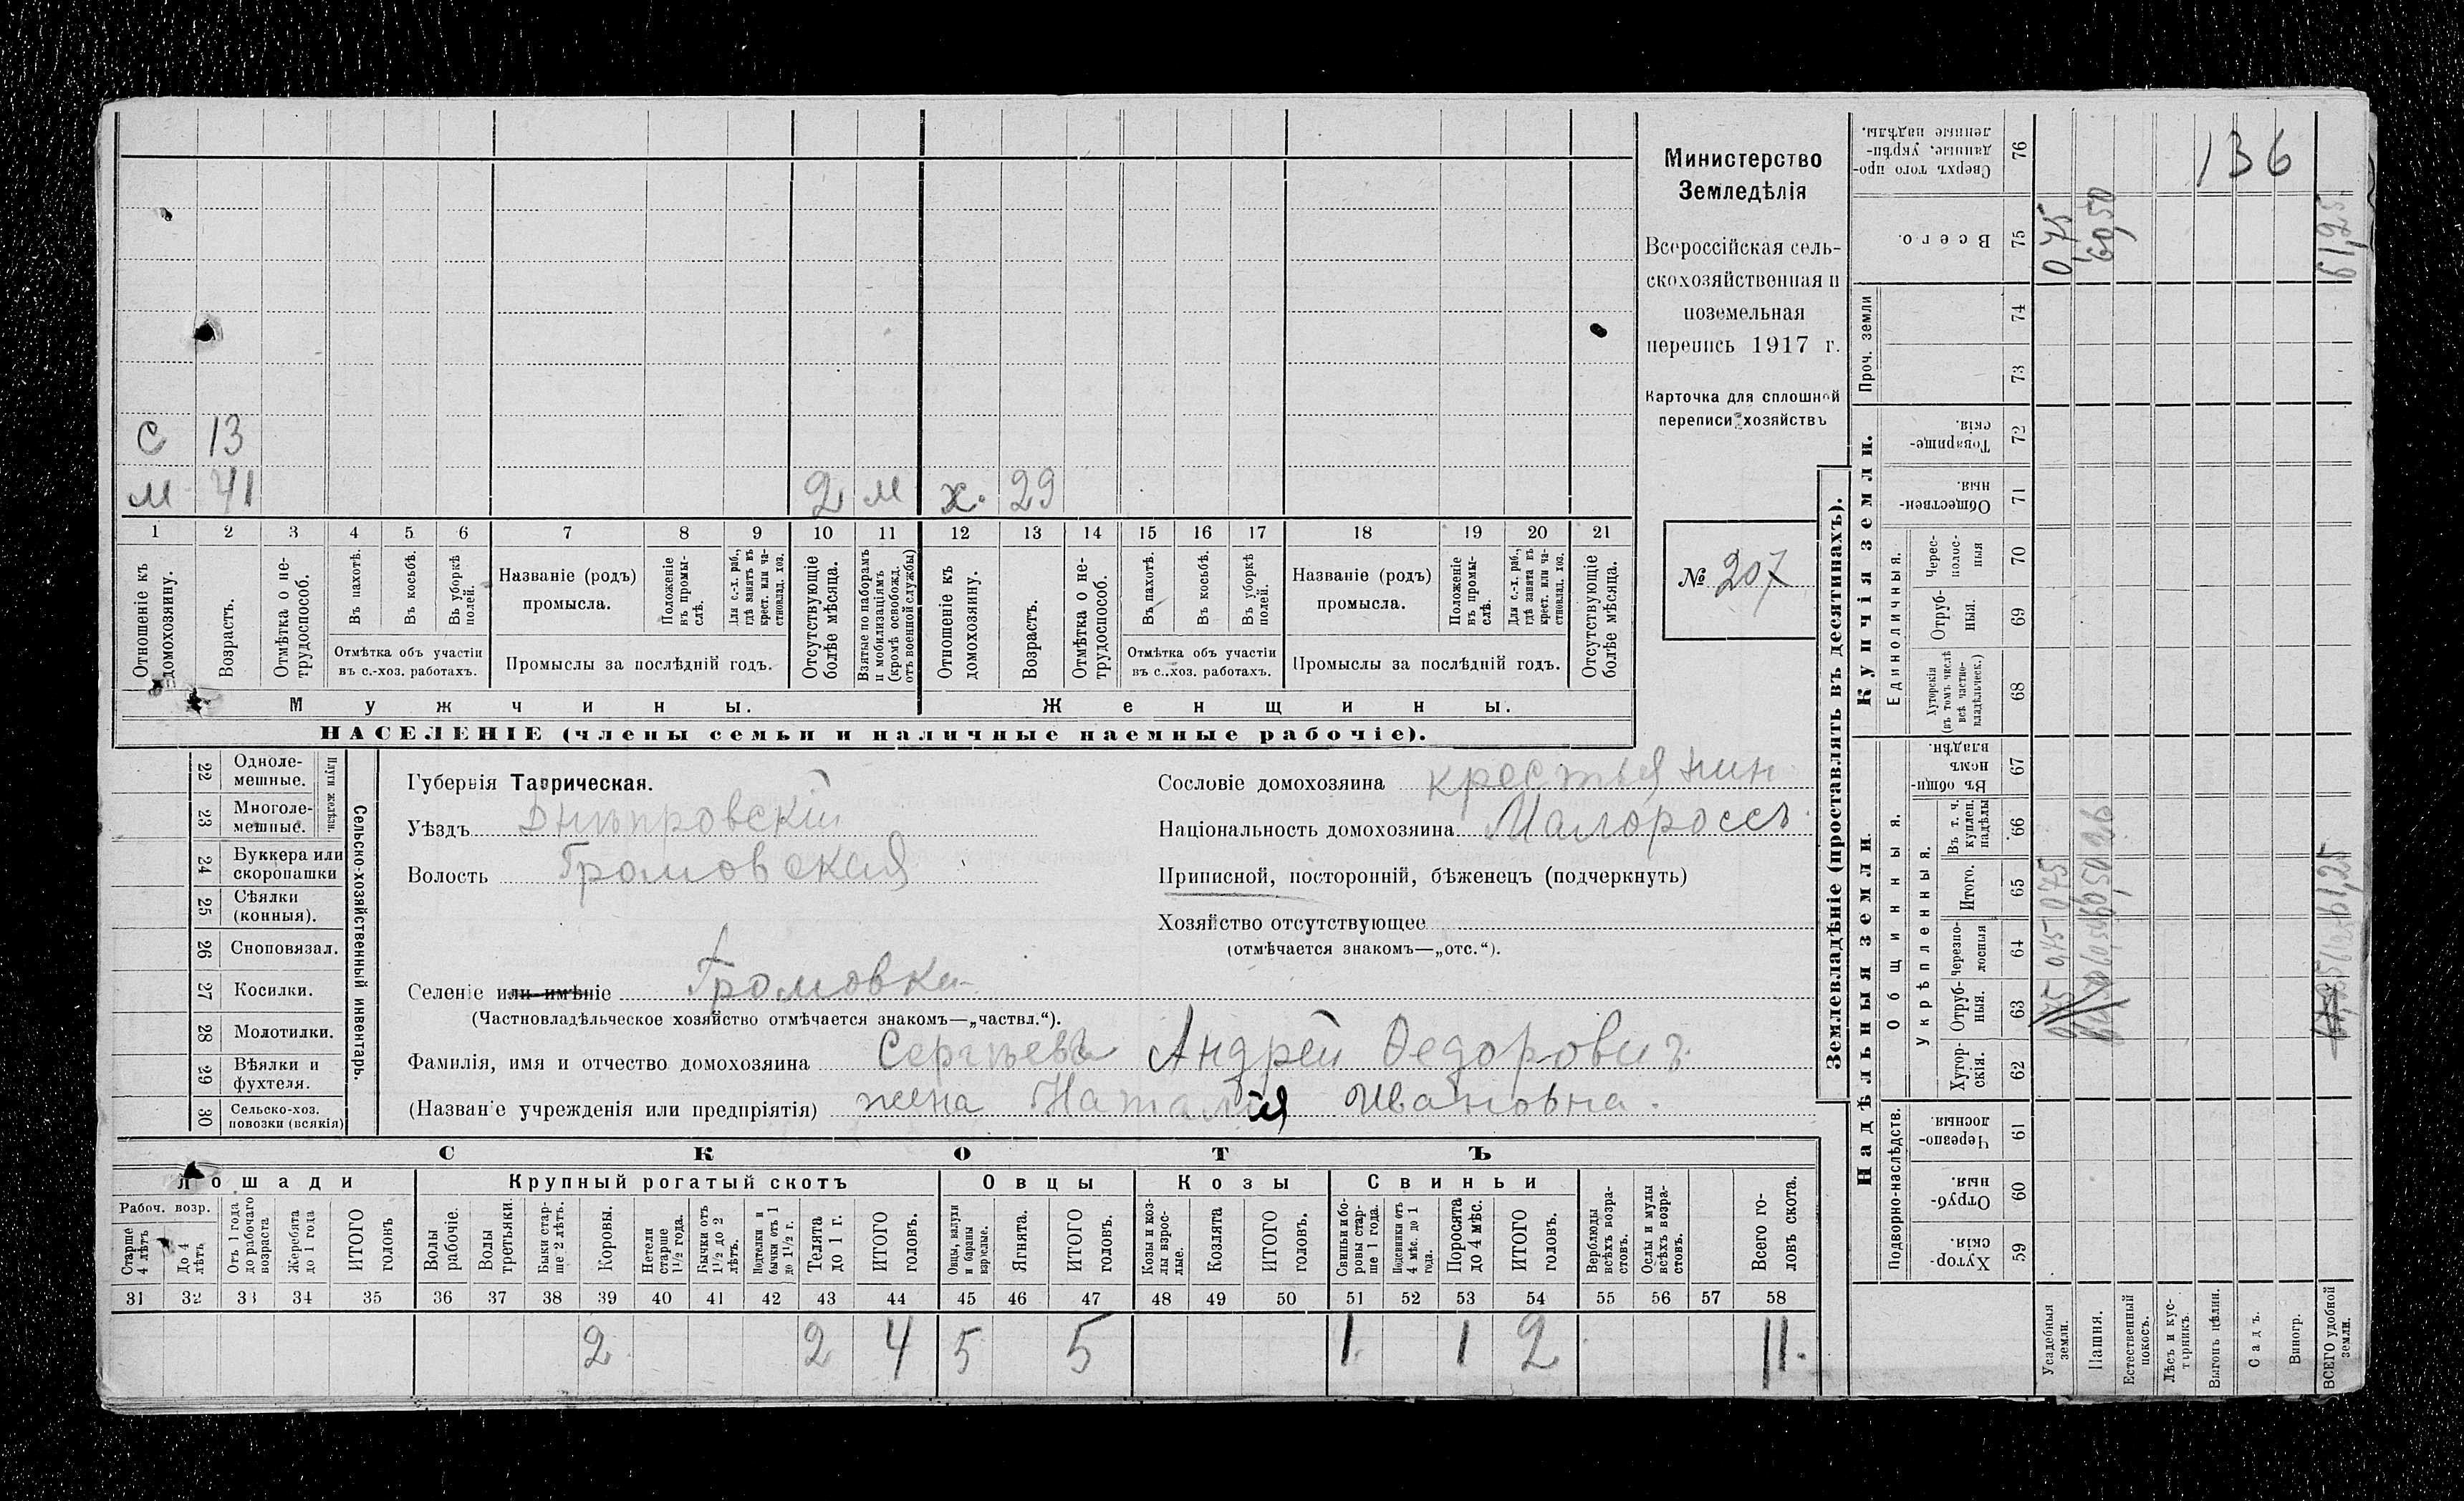 С 13
М 41 2 М х. 29
1 2 3 4 5 6 7 8 9 10 11 12 13 14 15 16 17 18 19 20 21
Отношеніе къ домохозяину.
Возрастъ.
Отмѣтка о не-
трудоспособ.
Въ пахотѣ.
Въ косьбѣ.
Въ уборкѣ полей.
Отмѣтка объ участіи
въ с.-хоз. работахъ.
Названіе (родъ)
промысла.
Положеніе
въ промы-
слѣ.
Для с.-х. раб.,
гдѣ занятъ въ
крест. или ча-
стновлад. хоз.
Промыслы за послѣдній годъ.
Отсутствующіе
болѣе мѣсяца.
Взятые по наборамъ
и мобилизаціямъ
(кромѣ освобожд.
отъ военной службы)
Отношеніе къ
домохозяину.
Возрастъ.
Отмѣтка о не-
трудоспособ.
Въ пахотѣ.
Въ косьбѣ.
Въ уборкѣ
полей.
Отмѣтка объ участіи
въ с..хоз. работахъ.
Названіе (родъ)
промысла.
Положеніе
въ промы-
слѣ.
Для с.-х. раб.,
гдѣ занята въ
крест. или ча-
стновлад. хоз.
Промыслы за послѣдній годъ.
Отсутствующіе
болѣе мѣсяца.
Мужчины. Женщины.
НАСЕЛЕНІЕ (члены семьи и наличные наемные рабочіе).
Министерство
Земледѣлія
Всероссійская сель-
скохозяйственная и
поземельная
перепись 1917 г.
Карточка для сплошной
переписи хозяйствъ
№ 207
22 Одноле-
мешные.
23 Многоле-
мешные.
Плуги желѣзн.
24 Буккера или
скоропашки
25 Сѣялки
(конныя).
26 Сноповязал.
27 Косилки.
28 Молотилки.
29 Вѣялки и
фухтеля.
30 Сельско-хоз.
повозки (всякія)
Сельско-хозяйственный инвентарь.
Губернія Таврическая.
Уѣздъ Днѣпровскій
Волость Громовская
Селеніе или имѣніе Громовка
(Частновладѣльческое хозяйство отмѣчается знакомъ—„частвл.“).
Фамилія, имя и отчество домохозяина Сергѣевъ Андрей Ѳедорович
(Названіе учрежденія или предпріятія) жена Наталія Ивановна.
Сословіе домохозяина крестьянин
Національность домохозяина Малороссъ
Приписной, посторонній, бѣженецъ (подчеркнуть)
Хозяйство отсутствующее
(отмѣчается знакомъ—„отс.“).
СКОТЪ
Лошади Крупный рогатый скотъ Овцы Козы Свиньи
Рабоч. возр.
Старше
4 лѣтъ
До 4
лѣтъ
Отъ 1 года
до рабочаго
возраста
Жеребята
до 1 года
ИТОГО
головъ
Волы
рабочіе.
Волы
третьяки.
Быки стар-
ше 2 лѣтъ.
Коровы.
Нетели
старше
1½ года.
Бычки отъ
1½ до 2
лѣтъ.
Подтелки и
бычки отъ 1
до 1½ г.
Телята
до 1 г.
ИТОГО
головъ.
Овцы, валухи
и бараны
взрослые.
Ягнята.
ИТОГО
головъ.
Козы и коз-
лы взрос-
лые.
Козлята
ИТОГО
головъ.
Свиньи и бо-
ровы стар-
ше 1 года.
Подсвинки отъ
4 мѣс. до 1
года.
Поросята
до 4 мѣс.
ИТОГО
головъ.
Верблюды
всѣхъ возра-
стовъ.
Ослы и мулы
всѣхъ возра-
стовъ.
Всего го-
ловъ скота.
31 32 33 34 35 36 37 38 39 40 41 42 43 44 45 46 47 48 49 50 51 52 53 54 55 56 57 58
2 2 4 5 5 1 1 2 11.
Землевладѣніе (проставлять въ десятинахъ).
Надѣльныя земли. Купчія земли. Проч. земли
Подворно-наслѣдств. Общинныя. Единоличныя.
Укрѣпленныя.
Хутор-
скія. 59
Отруб-
ныя. 60
Черезпо-
лосныя 61
Хутор-
скія. 62
Отруб-
ныя. 63
Черезпо-
лосныя 64
Итого. 65
Въ т. ч.
куплен.
надѣлы 66
Въ общи-
номъ
владѣн. 67
Хуторскія
(въ томъ числѣ
всѣ частно-
владѣльческ.) 68
Отруб-
ныя. 69
Черес-
полос-
ныя 70
Обществен-
ныя. 71
Товарище-
скія. 72
73
74
Всего. 75
Сверхъ того про-
данные, укрѣп-
ленные надѣлы. 76
Усадебныя
земли. 0,75 0,75 0,75
Пашня. 60,50 60,50
Естественный
покосъ.
Лѣсъ и кус-
тарникъ.
Выгонъ цѣлин.
Садъ.
Виногр.
ВСЕГО удобной
земли. 61,25 61,25
136